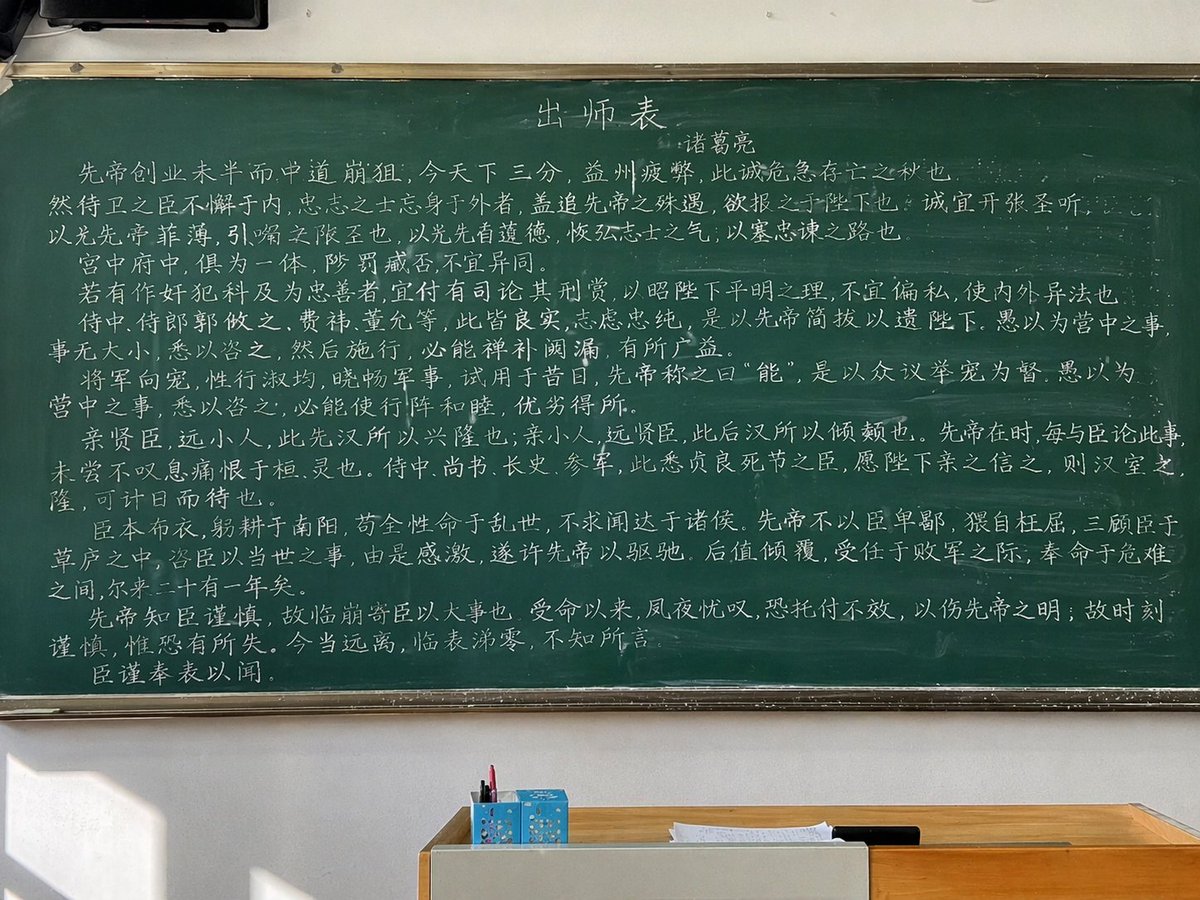 出师表
诸葛亮
先帝创业未半而中道崩狙,今天下三分,益州疲弊,此诚危急存亡之秋也
然侍卫之臣不懈于内,忠志之士忘身于外者,盖追先帝之殊遇,欲报之于陛下也。诚宜开张圣听,
以先帝菲薄,引喻也,以先自德,恢弘志士之气;以塞忠谏之路也。
宫中府中,俱为一体,陟罚臧否,不宜异同。
若有作奸犯科及为忠善者,宜付有司论其刑赏,以昭陛下平明之理,不宜偏私,使内外异法也
侍中、侍郎郭攸之、费祎、董允等,此皆良实,志虑忠纯,是以先帝简拔以遗陛下。愚以为营中之事,
事无大小,悉以咨之,然后施行,必能禅补阙漏,有所广益。
将军向宠,性行淑均,晓畅军事,试用于昔日,先帝称之曰“能”,是以众议举宠为督。愚以为
营中之事,悉以咨之,必能使行阵和睦,优劣得所。
亲贤臣,远小人,此先汉所以兴隆也;亲小人,远贤臣,此后汉所以倾颓也。先帝在时,每与臣论此事,
未尝不叹息痛恨于桓、灵也。侍中、尚书、长史、参军,此悉贞良死节之臣,愿陛下亲之信之,则汉室之
隆,可计日而待也。
臣本布衣,躬耕于南阳,苟全性命于乱世,不求闻达于诸侯。先帝不以臣卑鄙,猥自枉屈,三顾臣于
草庐之中,咨臣以当世之事,由是感激,遂许先帝以驱驰。后值倾覆,受任于败军之际,奉命于危难
之间,尔来二十有一年矣。
先帝知臣谨慎,故临崩寄臣以大事也。受命以来,夙夜忧叹,恐托付不效,以伤先帝之明;故时刻
谨慎,惟恐有所失。今当远离,临表涕零,不知所言。
臣谨奉表以闻。